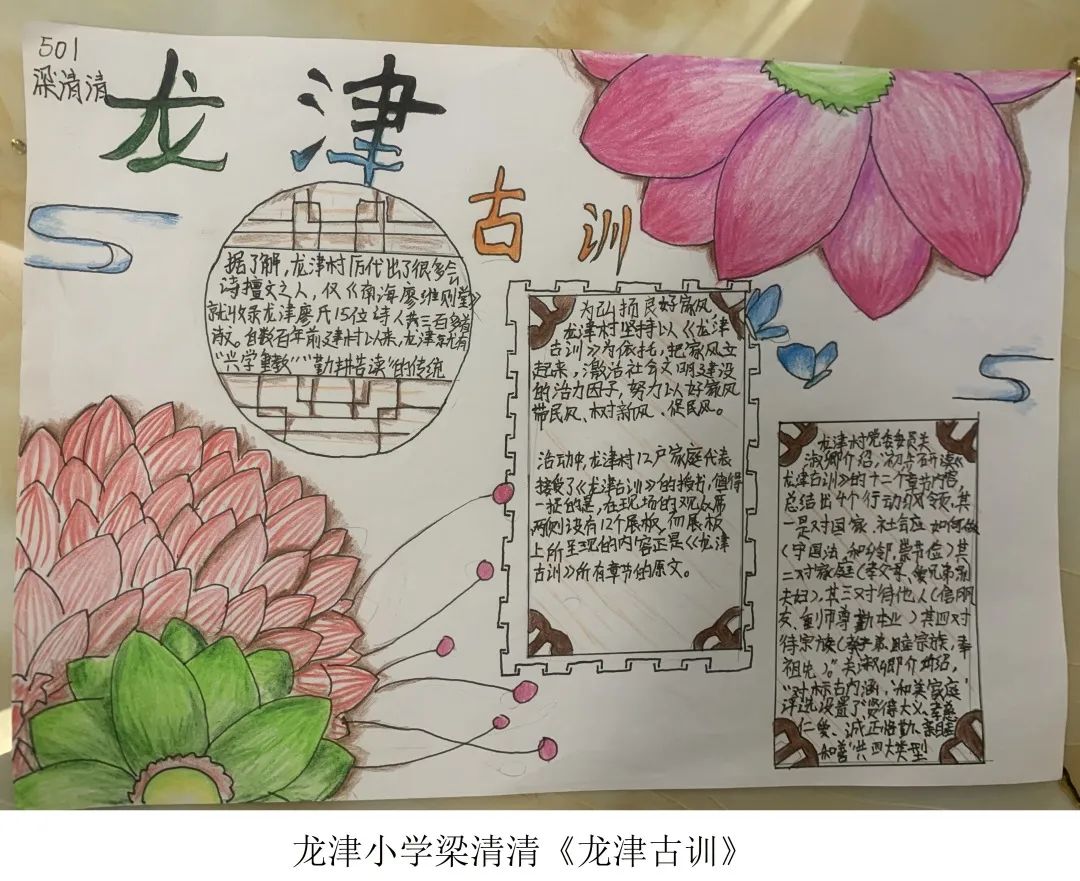 501
梁清清
龙津
古训
据了解,龙津村历代出了很多会
诗擅文之人,仅《南海廖维则堂》
就收录龙津廖氏15位诗人共三百多首
诗文。自数百年前建村以来,龙津就有
“兴学重教”“勤耕苦读”的传统
为弘扬良好家风,
龙津村坚持以《龙津
古训》为依托,把家风立
起来,激活社会文明建设
的活力因子,努力以好家风
带民风、树新风、促民风。
活动中,龙津村12户家庭代表
接受了《龙津古训》的授书,值得
一提的是,在现场的观众席
两侧设有12个展板,而展板
上所呈现的内容正是《龙津
古训》所有章节的原文。
龙津村党委委员关
淑卿介绍,初步研读《
龙津古训》的十二个章节内容,
总结出4个行动纲领,其
一是对国家、社会应如何做
(守国法、和乡邻、崇节俭)其
二对家庭(孝父母、爱兄弟、别
夫妇),其三对待他人(信朋
友、重师尊、勤本业)其四对
待宗族(教子弟、睦宗族,奉
祖先)。”关淑卿介绍,
“对标古门涵,‘和美家庭’
评选设置了“贤德大义、孝慈
仁爱、诚正恪勤、亲睦
和善”共四大类型
龙津小学梁清清《龙津古训》